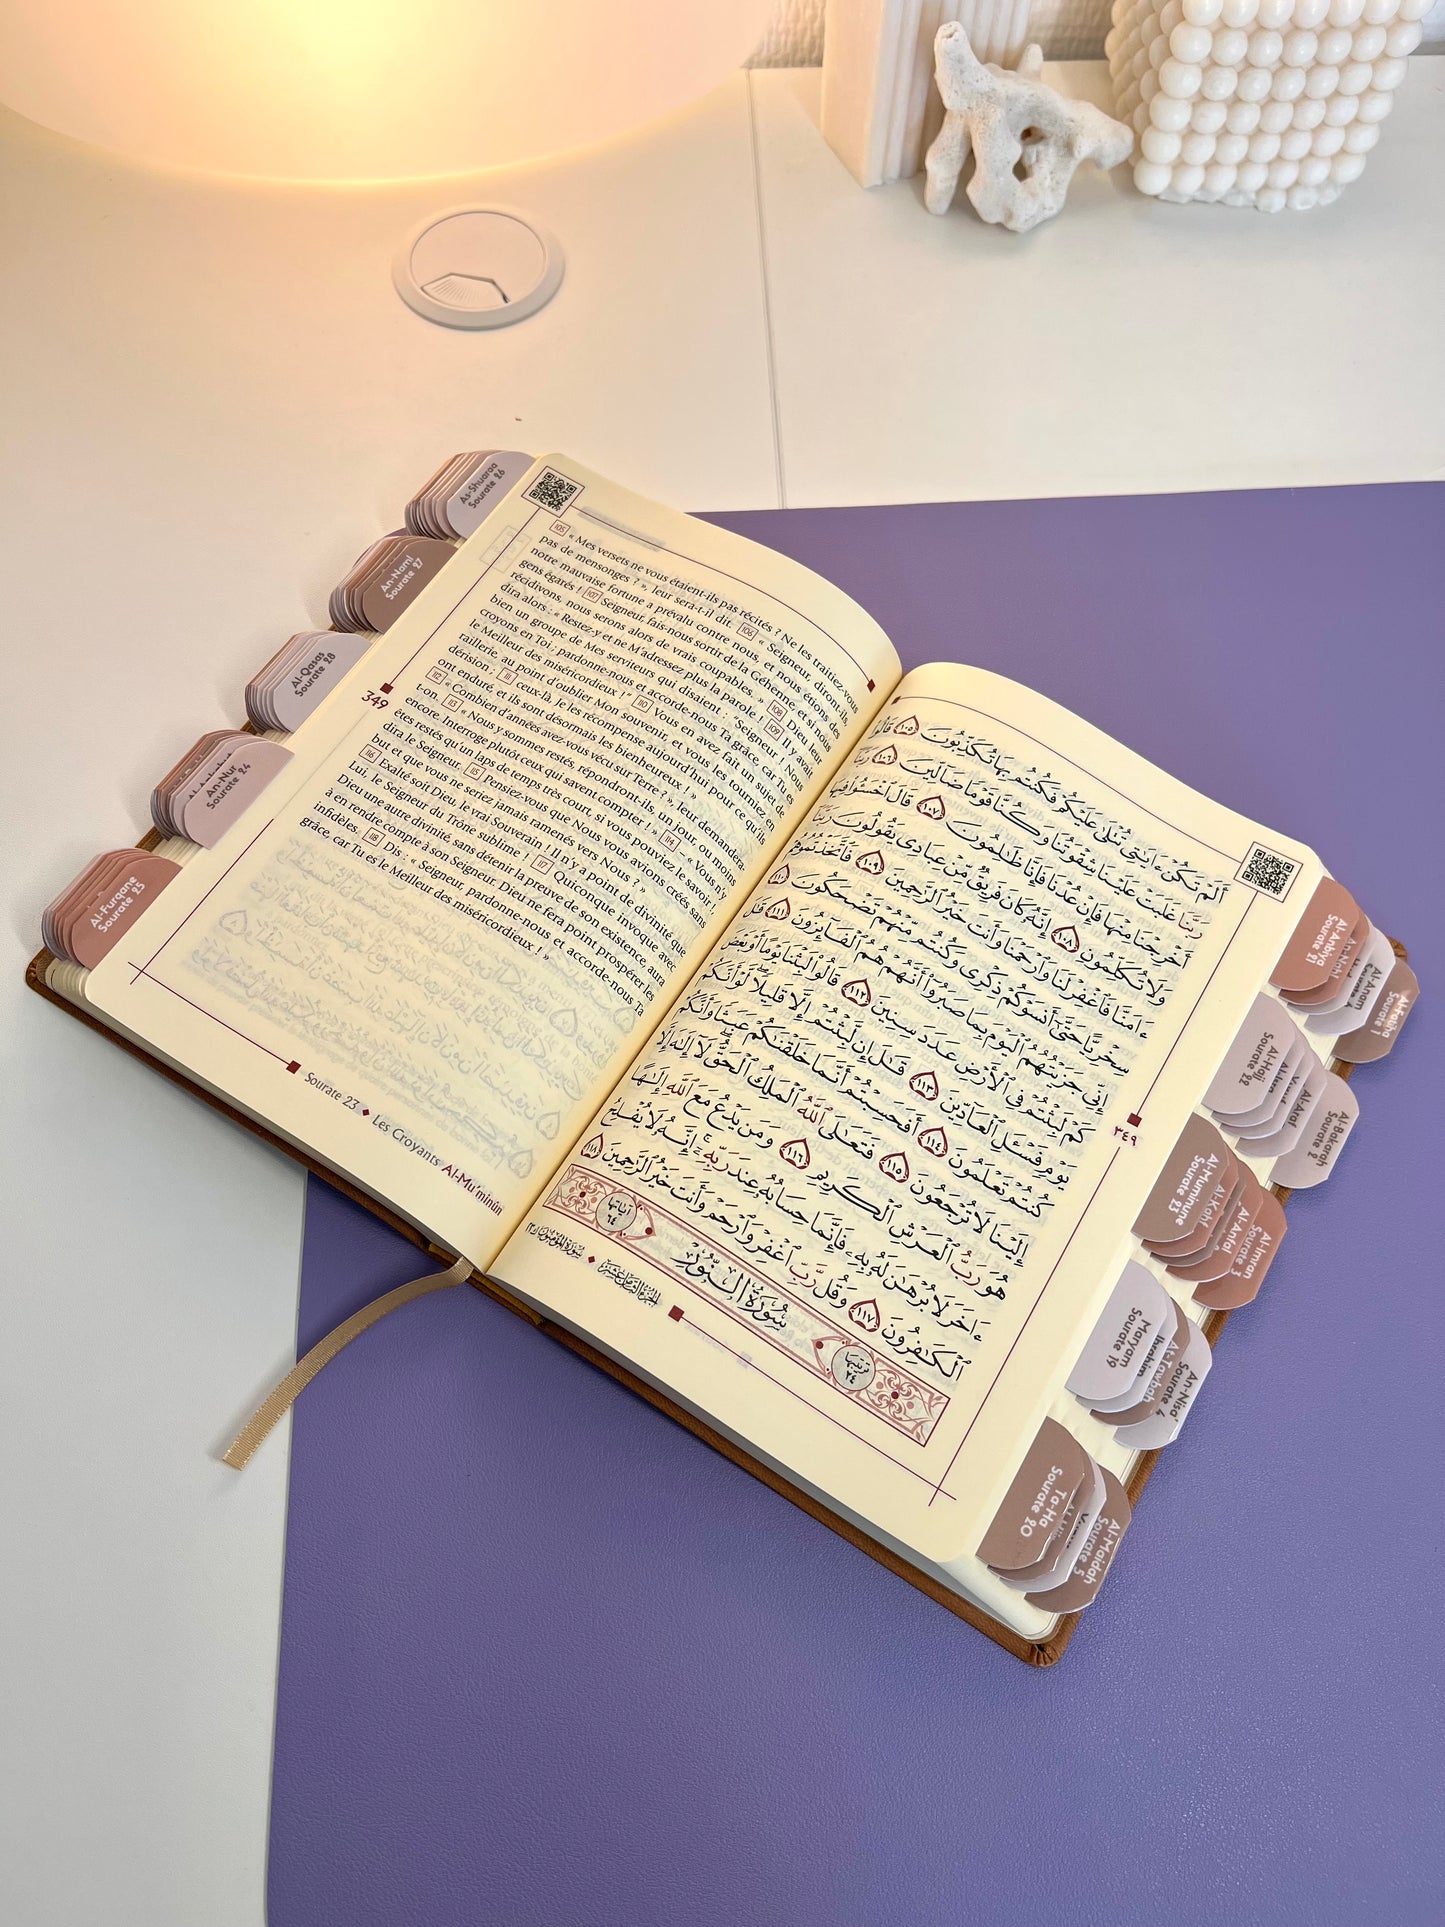 105 « Mes versets ne vous étaient-ils pas récités ? Ne les traitiez-vous
pas de mensonges ? », leur sera-t-il dit. 106 « Seigneur, diront-ils,
notre mauvaise fortune a prévalu contre nous, et nous étions des
gens égarés ! 107 Seigneur, fais-nous sortir de la Géhenne, et si nous
récidivons, nous serons alors de vrais coupables. » 108 Dieu leur
dira alors : « Restez-y et ne M'adressez plus la parole ! 109 Il y avait
bien un groupe de Mes serviteurs qui disaient : "Seigneur ! Nous
croyons en Toi ; pardonne-nous et accorde-nous Ta grâce, car Tu es
le Meilleur des miséricordieux !" 110 Vous en avez fait un sujet de
raillerie, au point d'oublier Mon souvenir, et vous les tourniez en
dérision ; 111 ceux-là, je les récompense aujourd'hui pour ce qu'ils
ont enduré, et ils sont désormais les bienheureux ! »
112 « Combien d'années avez-vous vécu sur Terre ? », leur demandera-
t-on. 113 « Nous y sommes restés, répondront-ils, un jour, ou moins
encore. Interroge plutôt ceux qui savent compter ! » 114 – « Vous n'y
êtes restés qu'un laps de temps très court, si vous pouviez le savoir !,
dira le Seigneur. 115 Pensiez-vous que Nous vous avions créés sans
but et que vous ne seriez jamais ramenés vers Nous ? »
116 Exalté soit Dieu, le vrai Souverain ! Il n'y a point de divinité que
Lui, le Seigneur du Trône sublime ! 117 Quiconque invoque avec
Dieu une autre divinité sans détenir la preuve de son existence, aura
à en rendre compte à son Seigneur. Dieu ne fera point prospérer les
infidèles. 118 Dis : « Seigneur, pardonne-nous et accorde-nous Ta
grâce, car Tu es le Meilleur des miséricordieux ! »
349
Sourate 23 ◆ Les Croyants Al-Mu'minûn
أَلَمْ تَكُنْ ءَايَٰتِي تُتْلَىٰ عَلَيْكُمْ فَكُنتُم بِهَا تُكَذِّبُونَ ١٠٥ قَالُوا۟
رَبَّنَا غَلَبَتْ عَلَيْنَا شِقْوَتُنَا وَكُنَّا قَوْمًا ضَآلِّينَ ١٠٦ رَبَّنَآ
أَخْرِجْنَا مِنْهَا فَإِنْ عُدْنَا فَإِنَّا ظَٰلِمُونَ ١٠٧ قَالَ ٱخْسَـُٔوا۟ فِيهَا
وَلَا تُكَلِّمُونِ ١٠٨ إِنَّهُۥ كَانَ فَرِيقٌ مِّنْ عِبَادِى يَقُولُونَ رَبَّنَآ
ءَامَنَّا فَٱغْفِرْ لَنَا وَٱرْحَمْنَا وَأَنتَ خَيْرُ ٱلرَّٰحِمِينَ ١٠٩ فَٱتَّخَذْتُمُوهُمْ
سِخْرِيًّا حَتَّىٰٓ أَنسَوْكُمْ ذِكْرِى وَكُنتُم مِّنْهُمْ تَضْحَكُونَ ١١٠
إِنِّى جَزَيْتُهُمُ ٱلْيَوْمَ بِمَا صَبَرُوٓا۟ أَنَّهُمْ هُمُ ٱلْفَآئِزُونَ ١١١ قَٰلَ
كَمْ لَبِثْتُمْ فِى ٱلْأَرْضِ عَدَدَ سِنِينَ ١١٢ قَالُوا۟ لَبِثْنَا يَوْمًا أَوْ بَعْضَ
يَوْمٍ فَسْـَٔلِ ٱلْعَآدِّينَ ١١٣ قَٰلَ إِن لَّبِثْتُمْ إِلَّا قَلِيلًا لَّوْ أَنَّكُمْ
كُنتُمْ تَعْلَمُونَ ١١٤ أَفَحَسِبْتُمْ أَنَّمَا خَلَقْنَٰكُمْ عَبَثًا وَأَنَّكُمْ
إِلَيْنَا لَا تُرْجَعُونَ ١١٥ فَتَعَٰلَى ٱللَّهُ ٱلْمَلِكُ ٱلْحَقُّ لَآ إِلَٰهَ إِلَّا
هُوَ رَبُّ ٱلْعَرْشِ ٱلْكَرِيمِ ١١٦ وَمَن يَدْعُ مَعَ ٱللَّهِ إِلَٰهًا
ءَاخَرَ لَا بُرْهَٰنَ لَهُۥ بِهِۦ فَإِنَّمَا حِسَابُهُۥ عِندَ رَبِّهِۦٓ إِنَّهُۥ لَا يُفْلِحُ
ٱلْكَٰفِرُونَ ١١٧ وَقُل رَّبِّ ٱغْفِرْ وَٱرْحَمْ وَأَنتَ خَيْرُ ٱلرَّٰحِمِينَ ١١٨
ترتيبها ٢٤ سُورَةُ ٱلنُّورِ آياتها ٦٤
٣٤٩
As-Shuaraa
Sourate 26
An-Naml
Sourate 27
Al-Qasas
Sourate 28
An-Nur
Sourate 24
Al-Furqane
Sourate 25
Al-Anbiya
Sourate 21
An-Nahl
Al-Anam
Al-Fatiha
Sourate 1
Al-Hajj
Sourate 22
Al-Isra
Al-Araf
Al-Bakarah
Sourate 2
Al-Muminune
Sourate 23
Al-Kahf
Al-Anfal
Al-Imran
Sourate 3
Maryam
Sourate 19
Ibrahim
At-Tawbah
An-Nisa'
Sourate 4
Ta-Ha
Sourate 20
Al-Maidah
Sourate 5